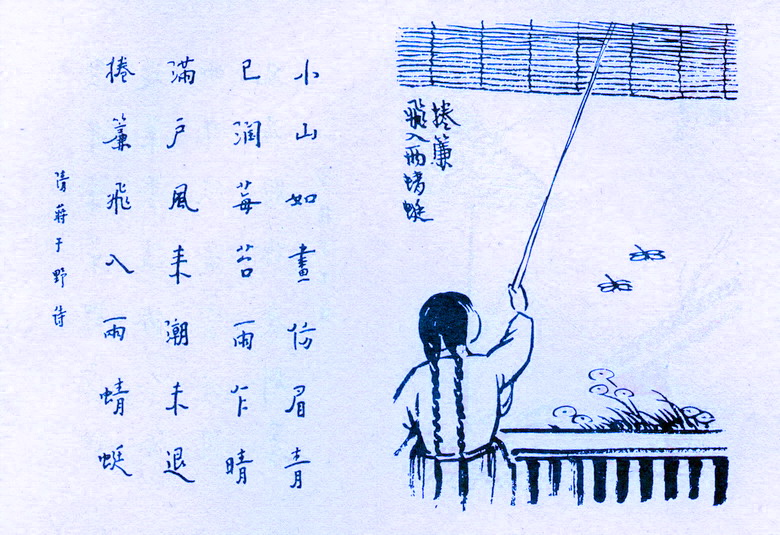 捲簾
飛入兩蜻蜓
小山如畫仿眉青
已润莓苔雨乍晴
滿戶風来潮未退
捲簾飛入兩蜻蜓
清蔣于野詩